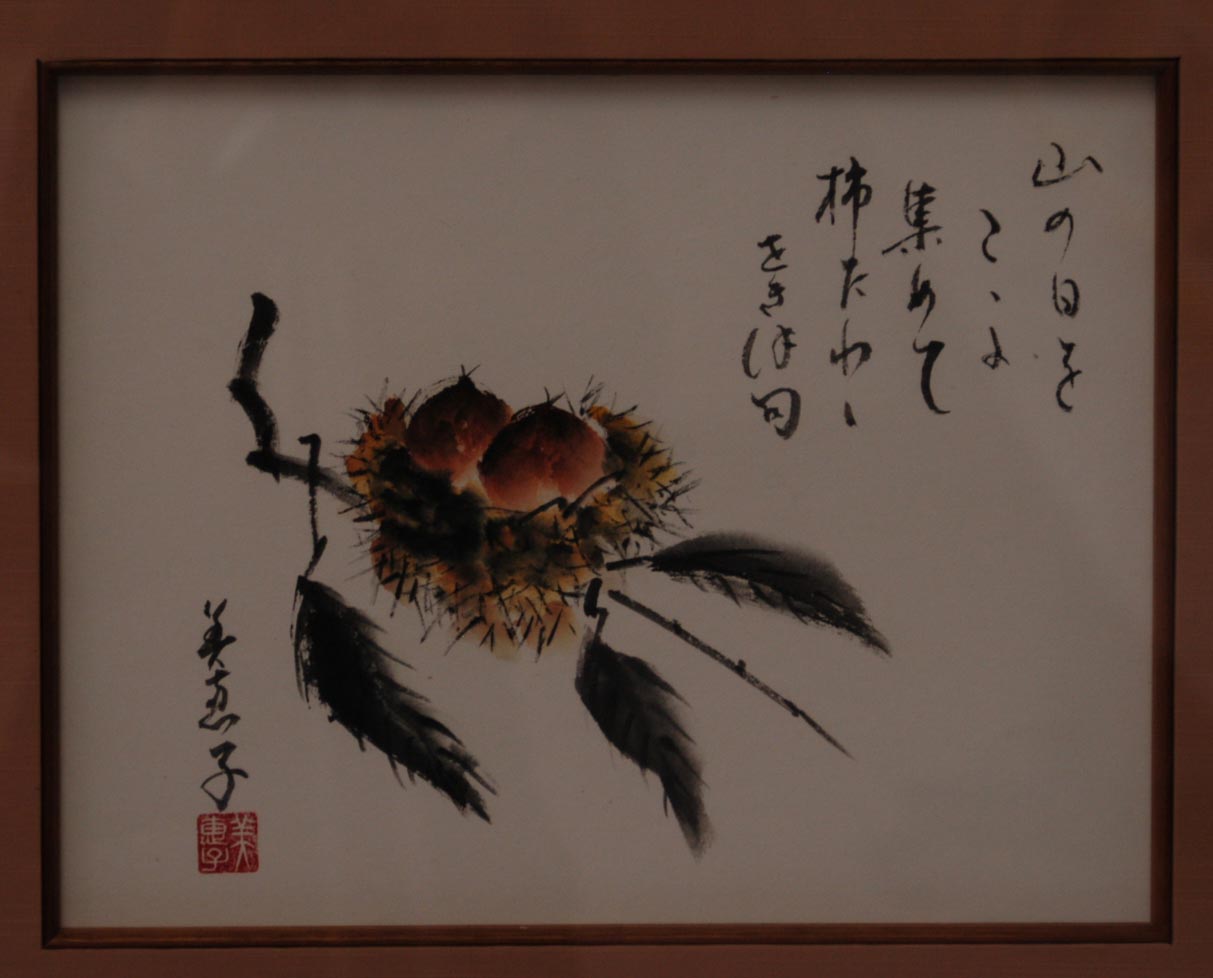 山の日を
こゝに
集めて
柿たわゝ
さき 句
美恵子
美惠子